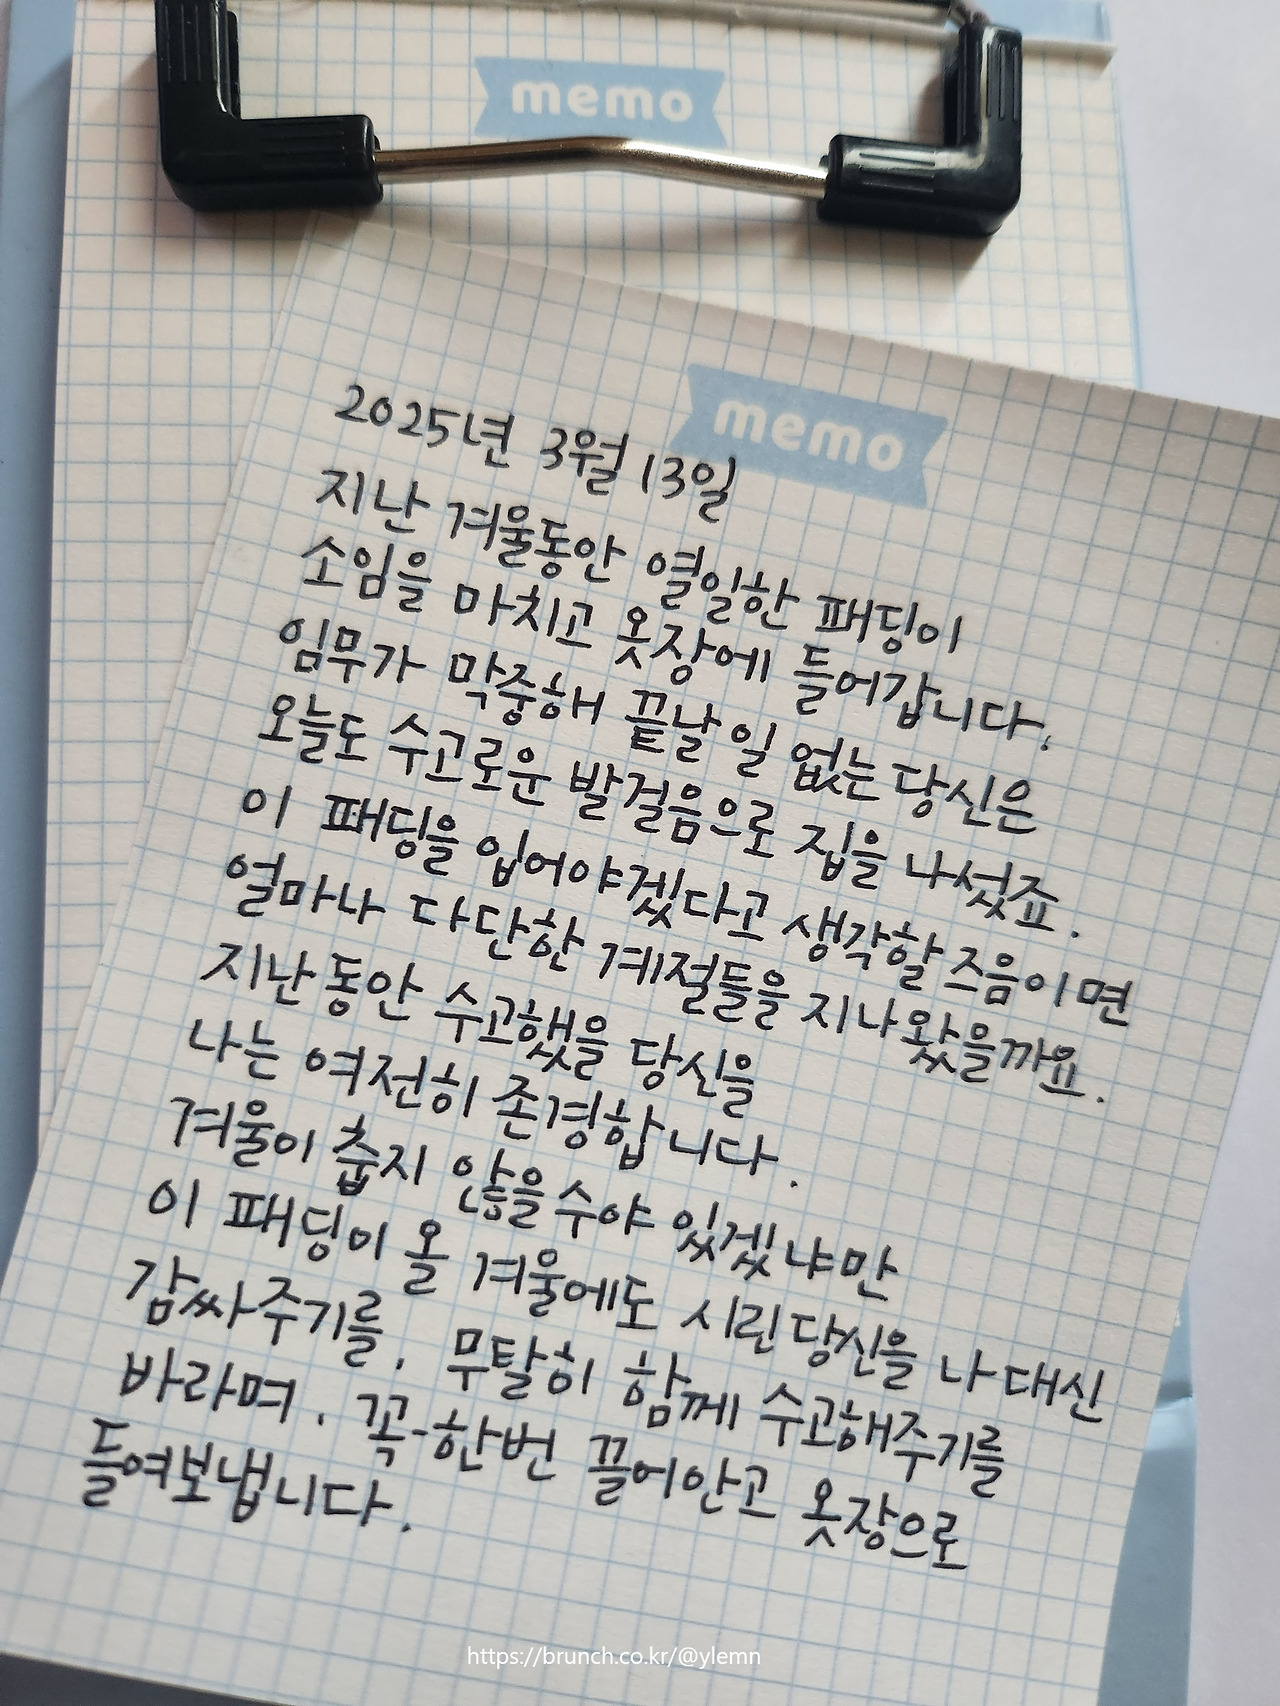 memo
memo
2025년 3월 13일
지난 겨울동안 열일한 패딩이
소임을 마치고 옷장에 들어갑니다.
임무가 막중해 끝날 일 없는 당신은
오늘도 수고로운 발걸음으로 집을 나섰죠.
이 패딩을 입어야겠다고 생각할 즈음이면
얼마나 다단한 계절들을 지나왔을까요.
지난 동안 수고했을 당신을
나는 여전히 존경합니다.
겨울이 춥지 않을 수야 있겠냐만
이 패딩이 올 겨울에도 시린 당신을 나 대신
감싸주기를, 무탈히 함께 수고해주기를
바라며, 꼭- 한번 끌어안고 옷장으로
들여보냅니다.
https://brunch.co.kr/@ylemn